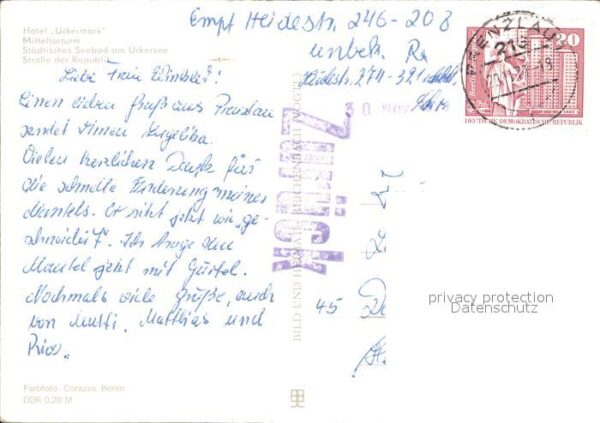 Hotel „Uckermark"
Mitteltorturm
Städtisches Seebad am Uckersee
Straße der Republik
Empf Heidestr. 246-208
unbek.
Heidestr. 274-321
30. Nov.
PRENZLAU 1
213
20
DEUTSCHE DEMOKRATISCHE REPUBLIK
Liebe Frau
Einen lieben Gruß aus Prenzlau
sendet Ihnen Angelika.
Vielen herzlichen Dank für
die schnelle Änderung meines
Mantels. Er sitzt jetzt wie „ge-
schneidert". Ich trage den
Mantel jetzt mit Gürtel.
Nochmals viele Grüße, auch
von Mutti, Matthias und
ZURÜCK
BILD UND HEIMAT REICHENBACH (VOGTL)
45
privacy protection
Datenschutz
Farbfoto: Corazza, Berlin
DDR 0,20 M